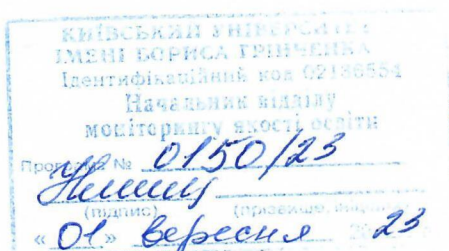 КИЇВСЬКИЙ УНІВЕРСИТЕТ
ІМЕНІ БОРИСА ГРІНЧЕНКА
Ідентифікаційний код 02136554
Начальник відділу
моніторингу якості освіти
Програма № 0150/23
(підпис) (прізвище, ініціали)
«01» вересня 2023